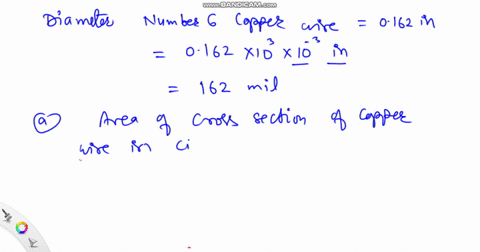 WWW.BANDICAM.COM
Diameter Number 6 Copper wire = 0.162 in
= 0.162 × 10³ × 10⁻³ in
= 162 mil
(a) Area of cross section of Copper
wire in ci